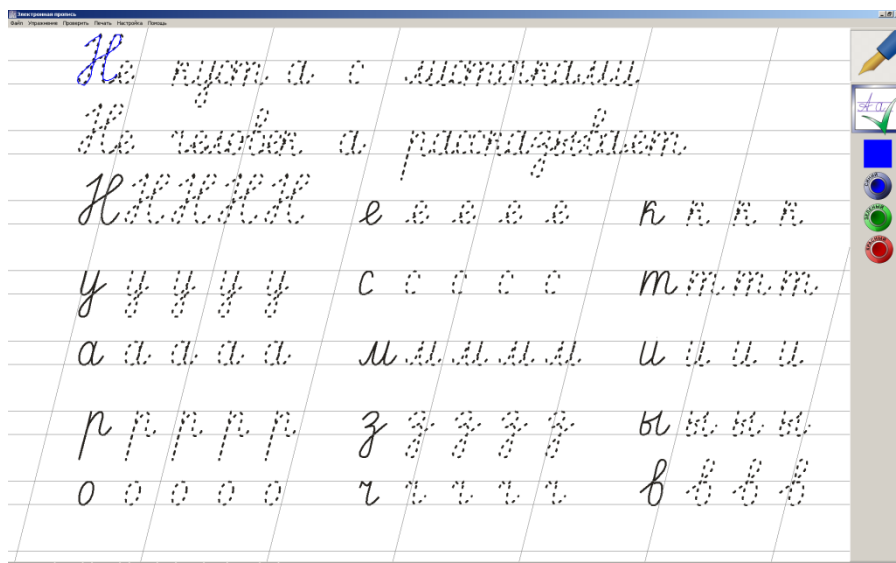 Электронная пропись
Файл Упражнение Проверить Печать Настройка Помощь
Не куст, а с листочками.
Не человек, а рассказывает.
Н Н Н Н Н е е е е е к к к к
у у у у у с с с с с т т т т
а а а а а м м м м м и и и и
р р р р р з з з з з ы ы ы ы
о о о о о ч ч ч ч ч в в в в
СИНИЙ
ЗЕЛЕНЫЙ
КРАСНЫЙ